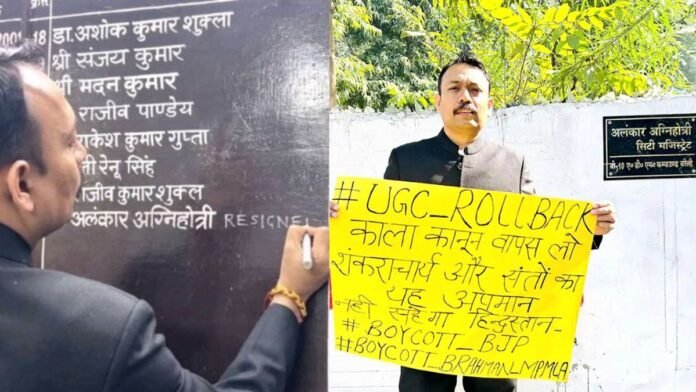 2001-18 डा. अशोक कुमार शुक्ला
श्री संजय कुमार
श्री मदन कुमार
राजीव पाण्डेय
राकेश कुमार गुप्ता
रेनू सिंह
राजीव कुमार शुक्ल
अलंकार अग्निहोत्री RESIGNE
अलंकार अग्निहोत्री
सिटी मजिस्ट्रेट
# UGC_ROLLBACK
काला कानून वापस लो
शंकराचार्य और संतों का
यह अपमान
नहीं सहेगा हिन्दुस्तान-
# BOYCOTT_BJP
#BOYCOTT_BRAHMAN_MPMLA